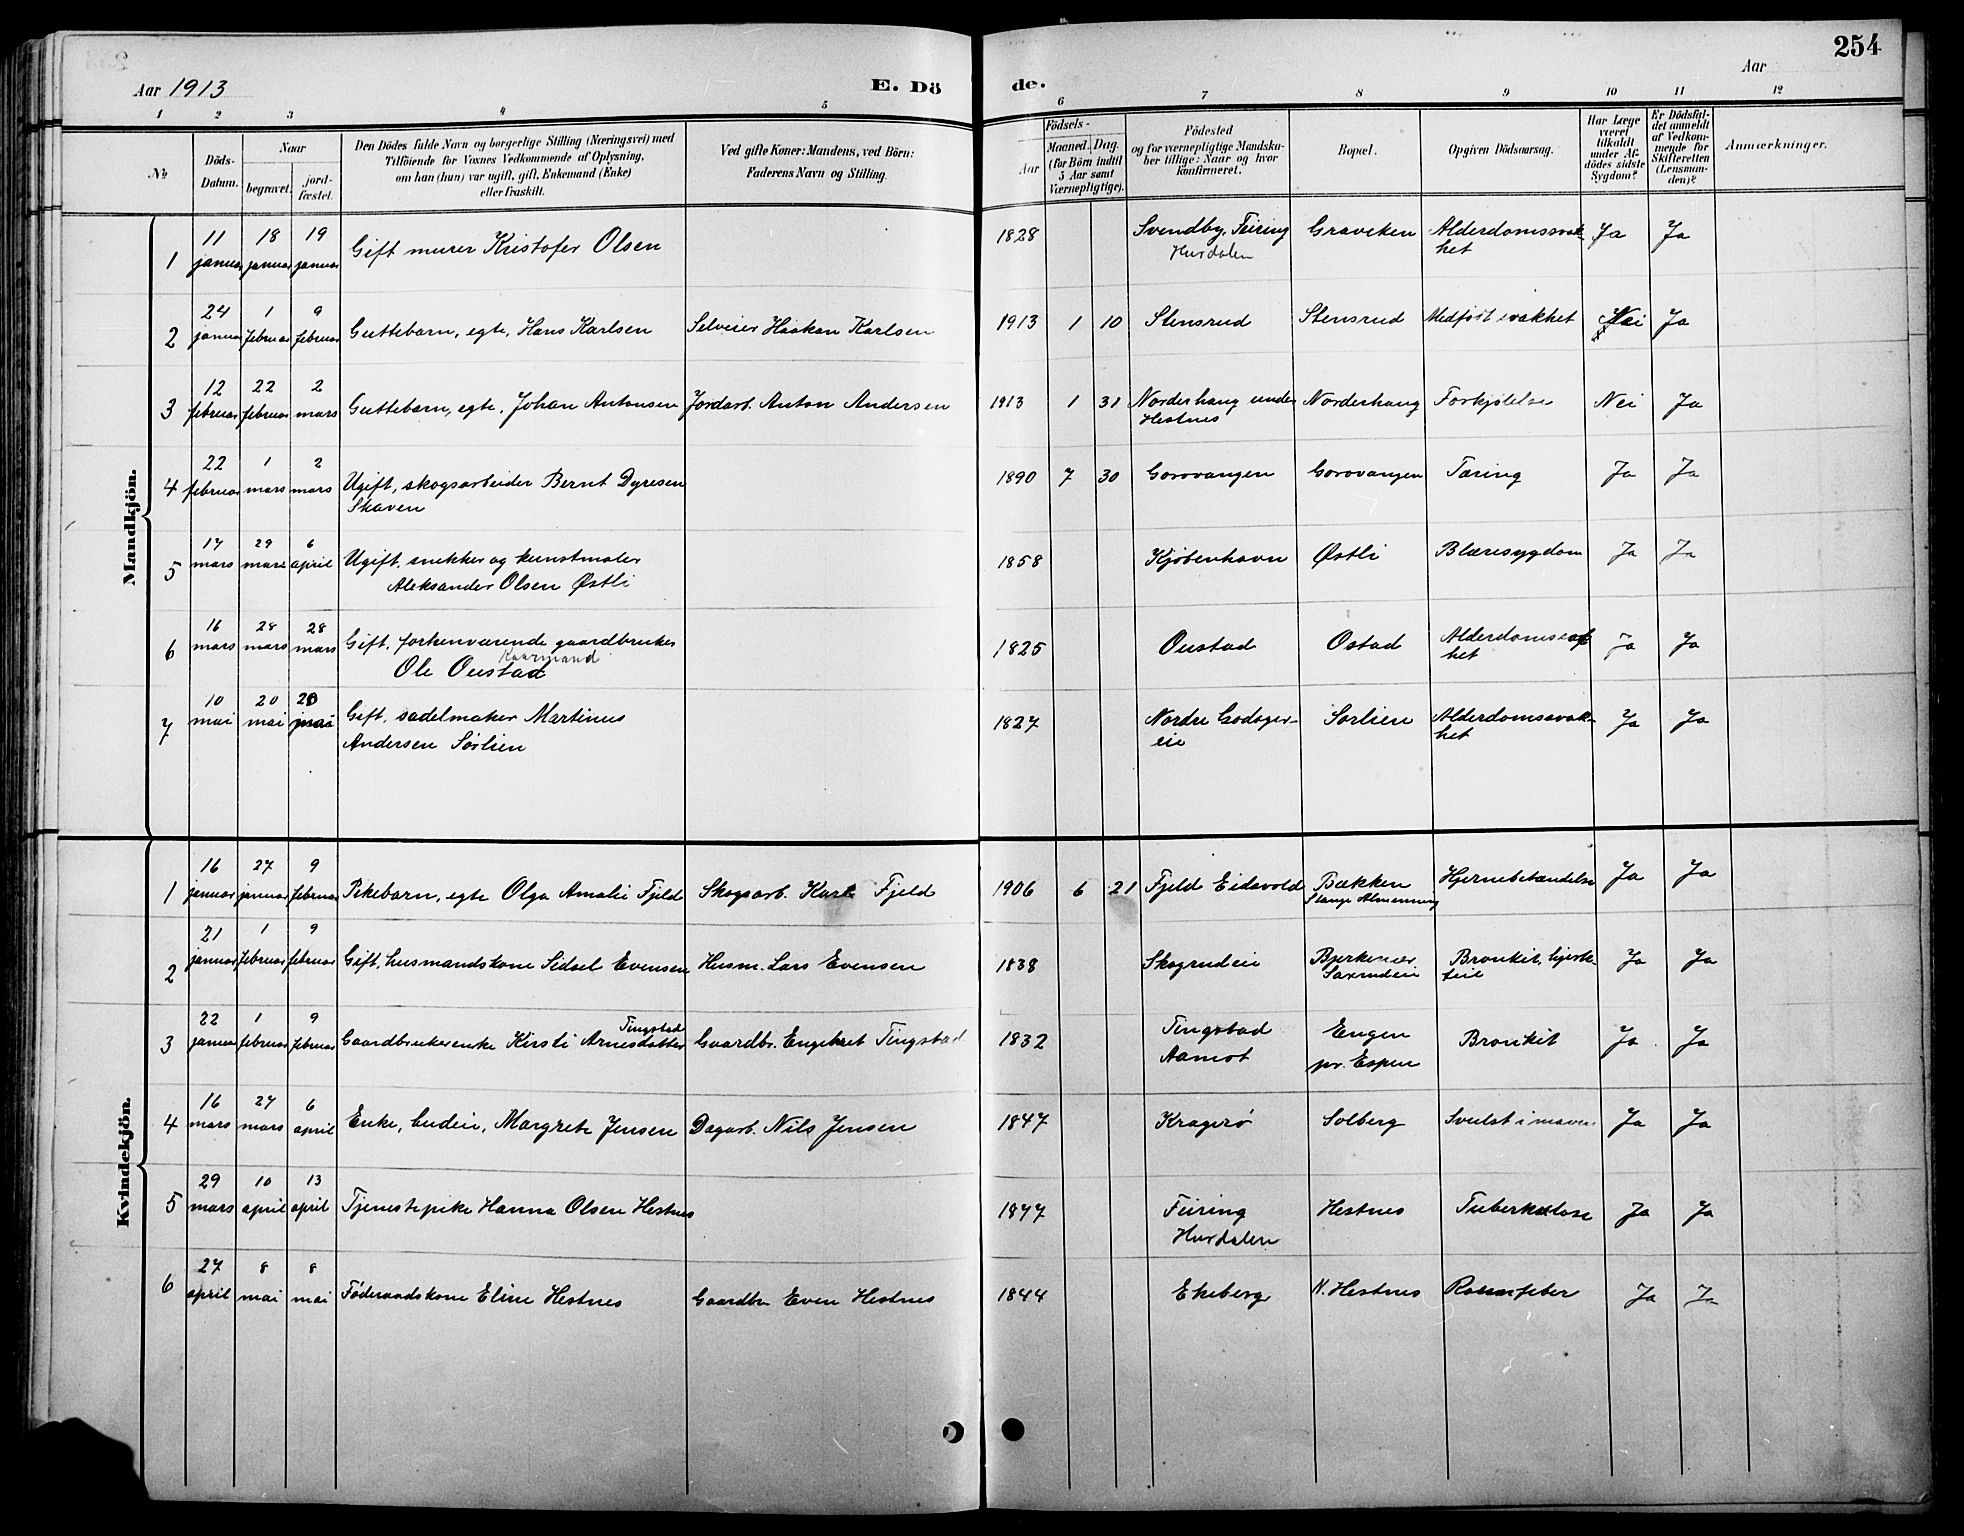 254
Aar 1913
E. Dö
de.
Aar
1 2 3 4 5 6 7 8 9 10 11 12
№
Döds-Datum.
Naar
begravet.
jord-fæstet.
Den Dödes fulde Navn og borgerlige Stilling (Næringsvei) med
Tilföiende for Voxnes Vedkommende af Oplysning,
om han (hun) var ugift, gift, Enkemand (Enke)
eller fraskilt.
Ved gifte Koner: Mandens, ved Börn:
Faderens Navn og Stilling.
Födsels-
Aar
Maaned. Dag.
(for Börn indtil
5 Aar samt
Værnepligtige).
Födested
og for værnepligtige Mandska-
ber tillige: Naar og hvor
konfirmeret.
Bopæl.
Opgiven Dödsaarsag.
Har Læge
været
tilkaldt
under Af-
dødes sidste
Sygdom?
Er Dödsfal-
det anmeldt
af Vedkom-
mende for
Skifteretten
(Lensman-
den)?
Anmærkninger.
Mandkjön.
1 11 januar 18 januar 19 januar Gift murer Kristofer Olsen 1828 Svendby, Feiring Hurdalen Graveken Alderdomssvakhet Ja Ja
2 24 januar 1 februar 9 februar Guttebarn, egte, Hans Karlsen Selveier Haakon Karlsen 1913 1 10 Stensrud Stensrud Medfødt svakhet Nei Ja
3 12 februar 22 februar 2 mars Guttebarn, egte, Johan Antonsen Jordarb. Anton Andersen 1913 1 31 Norderhaug under Hestnes Norderhaug Forkjølelse Nei Ja
4 22 februar 1 mars 2 mars Ugift, skogsarbeider Bernt Dyresen Skaven 1890 7 30 Gorovangen Gorovangen Tæring Ja Ja
5 17 mars 29 mars 6 april Ugift, snekker og kunstmaler Aleksander Olsen Østli 1858 Kjøbenhavn Østli Blæresygdom Ja Ja
6 16 mars 28 mars 28 mars Gift, forhenværende gaardbruker Kaarmand Ole Oustad 1825 Oustad Ostad Alderdomssvakhet Ja Ja
7 10 mai 20 mai 20 mai Gift, sadelmaker Martinus Andersen Sørlien 1827 Nordre Godager-eie Sørlien Alderdomssvak-het Ja Ja
Kvindekjön.
1 16 januar 27 januar 9 februar Pikebarn, egte Olga Amalie Fjeld Skogsarb. Karl Fjeld 1906 6 21 Fjeld Eidsvold Bækken Stange Almenning Hjernebetændelse Ja Ja
2 21 januar 1 februar 9 februar Gift, husmandskone Sidsel Evensen Husm. Lars Evensen 1838 Skogrudeie Bjerkenær Saxrudeie Bronkit, hjerte-feil Ja Ja
3 22 januar 1 februar 9 februar Gaardbrukerenke Kirsti Arnesdatter Tingstad Gaardbr. Engebret Tingstad 1832 Tingstad Aamot Engen pr. Espen Bronkit Ja Ja
4 16 mars 27 mars 6 april Enke, budeie, Margrete Jensen Dagarb. Nils Jensen 1847 Kragerø Solberg Svulst i maven Ja Ja
5 29 mars 10 april 13 april Tjenestepike Hanna Olsen Hestnes 1877 Feiring Hurdalen Hestnes Tuberkulose Ja Ja
6 27 april 8 mai 8 mai Føderaadskone Eline Hestnes Gaardbr. Even Hestnes 1844 Ekeberg N. Hestnes Rosenfeber Ja Ja